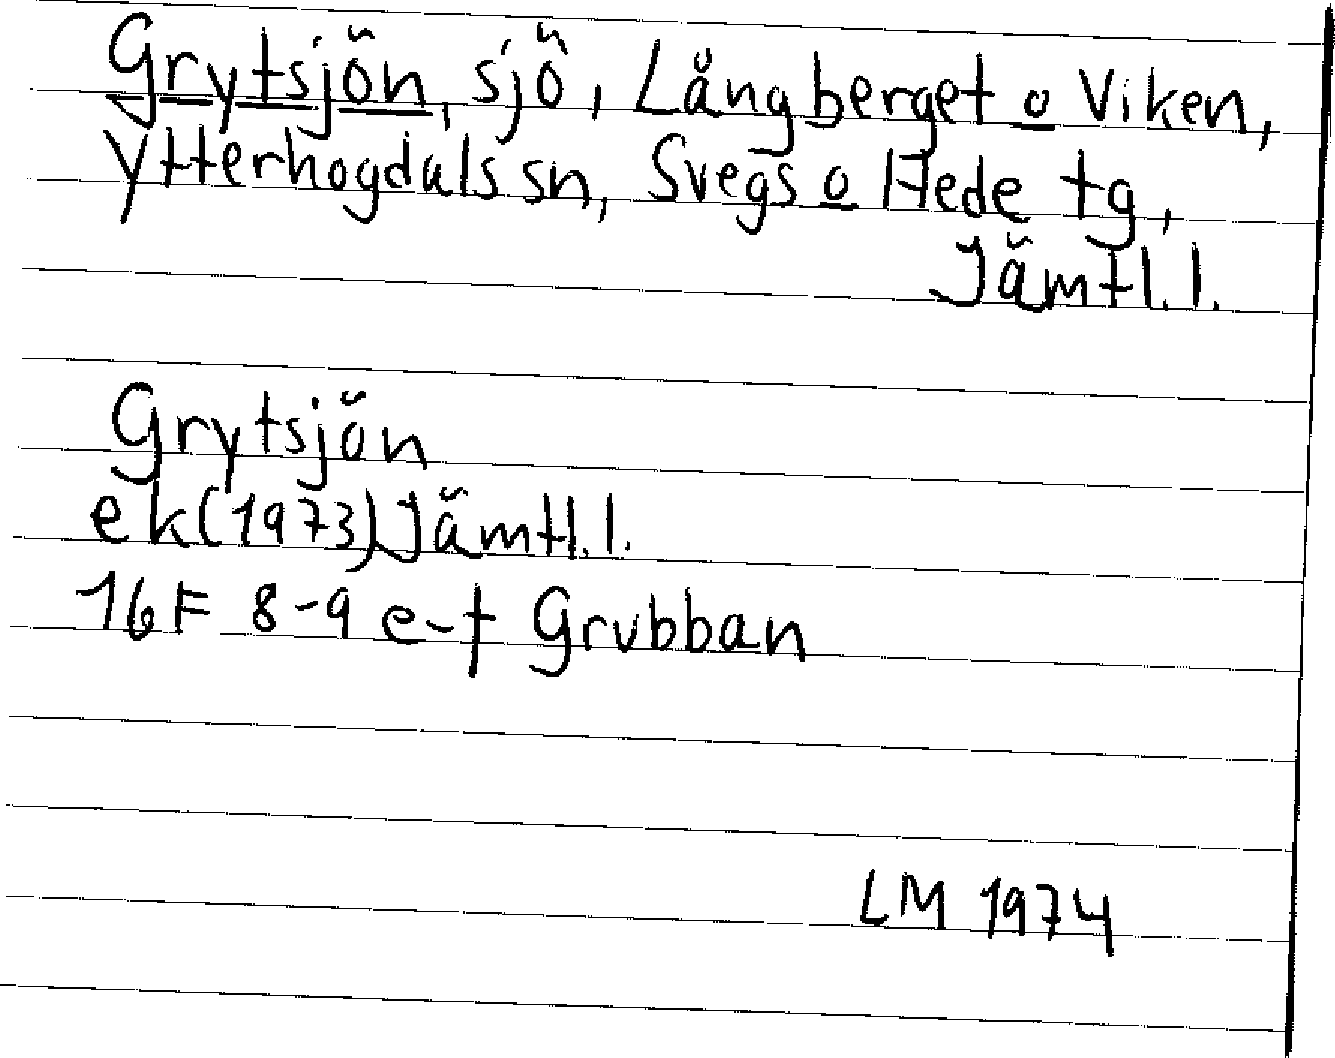 Grytsjön, sjö, Långberget o Viken,
Ytterhogdals sn, Svegs o Hede tg,
Jämtl.l.
Grytsjön
ek(1973)Jämtl.l.
16F 8-9 e-f Grubban
LM 1974